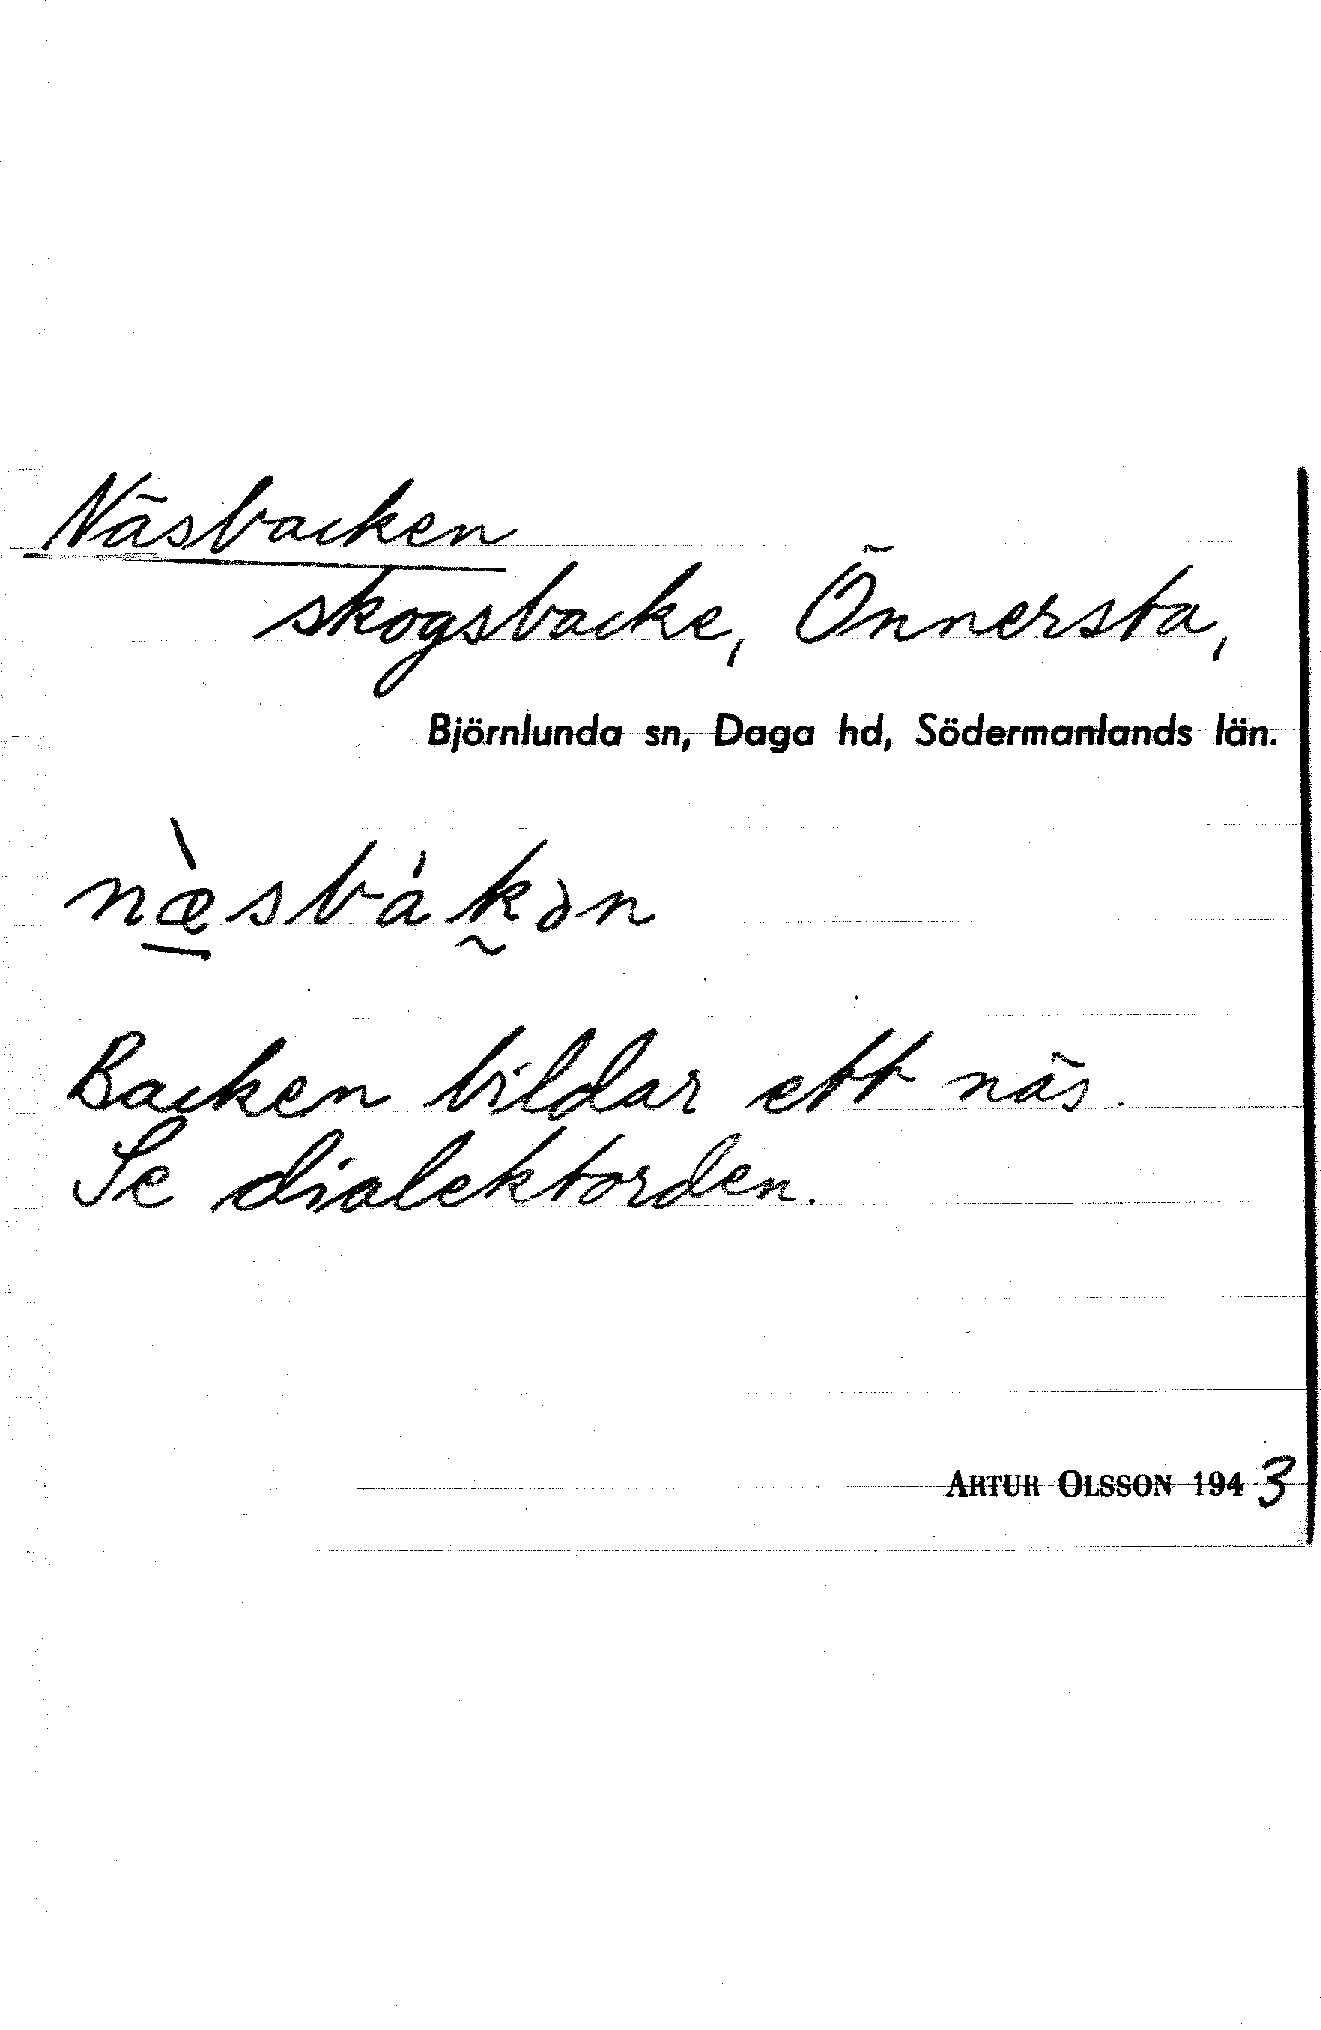 Näsbacken
skogsbacke, Önnersta,
Björnlunda sn, Daga hd, Södermanlands län.
næ̠̀sbák̰ən
Backen bildar ett näs.
Se dialektorden.
ARTUR OLSSON 1943